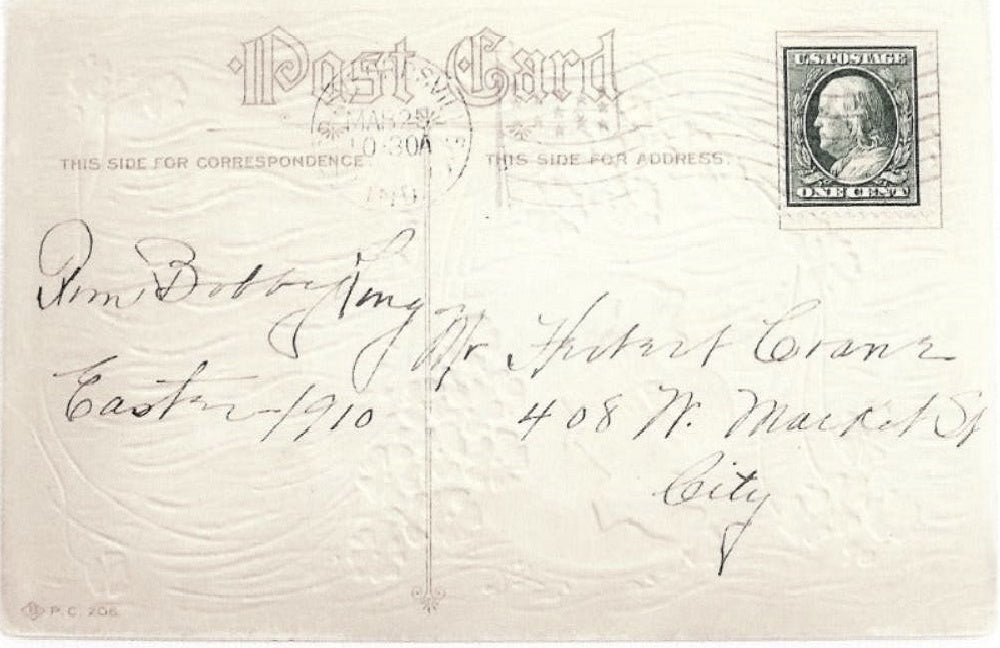 Post Card
MAR 25
10:30A
IND.
THIS SIDE FOR CORRESPONDENCE.
THIS SIDE FOR ADDRESS.
U.S. POSTAGE
ONE CENT
From Bobby King
Easter 1910
Mr Herbert Crane
408 W. Market St
City
P.C. 206.